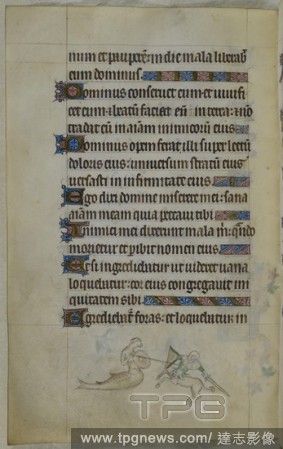 num et pauperē: in die mala liberab'
eum dominus.
Dominus conseruet eum et uiuifi
cet eum: & beatū faciat eū in terra: & nō
tradat eū in aīam inimicorū eius.
Dominus opem ferat illi super lectū
doloris eius: uniuersum stratū eius
uersasti in infirmitate eius.
Ego dixi domine miserere mei: sana
aīam meam quia peccaui tibi
Inimici mei dixerunt mala m': qn̄do
morietur et peribit nomen eius.
Et si ingrediebatur ut uideret uana
loquebatur: cor eius congregauit in
iquitatem sibi.
Egrediebat' foras: et loquebatur in
TPG
www.tpgnews.com/ 達志影像